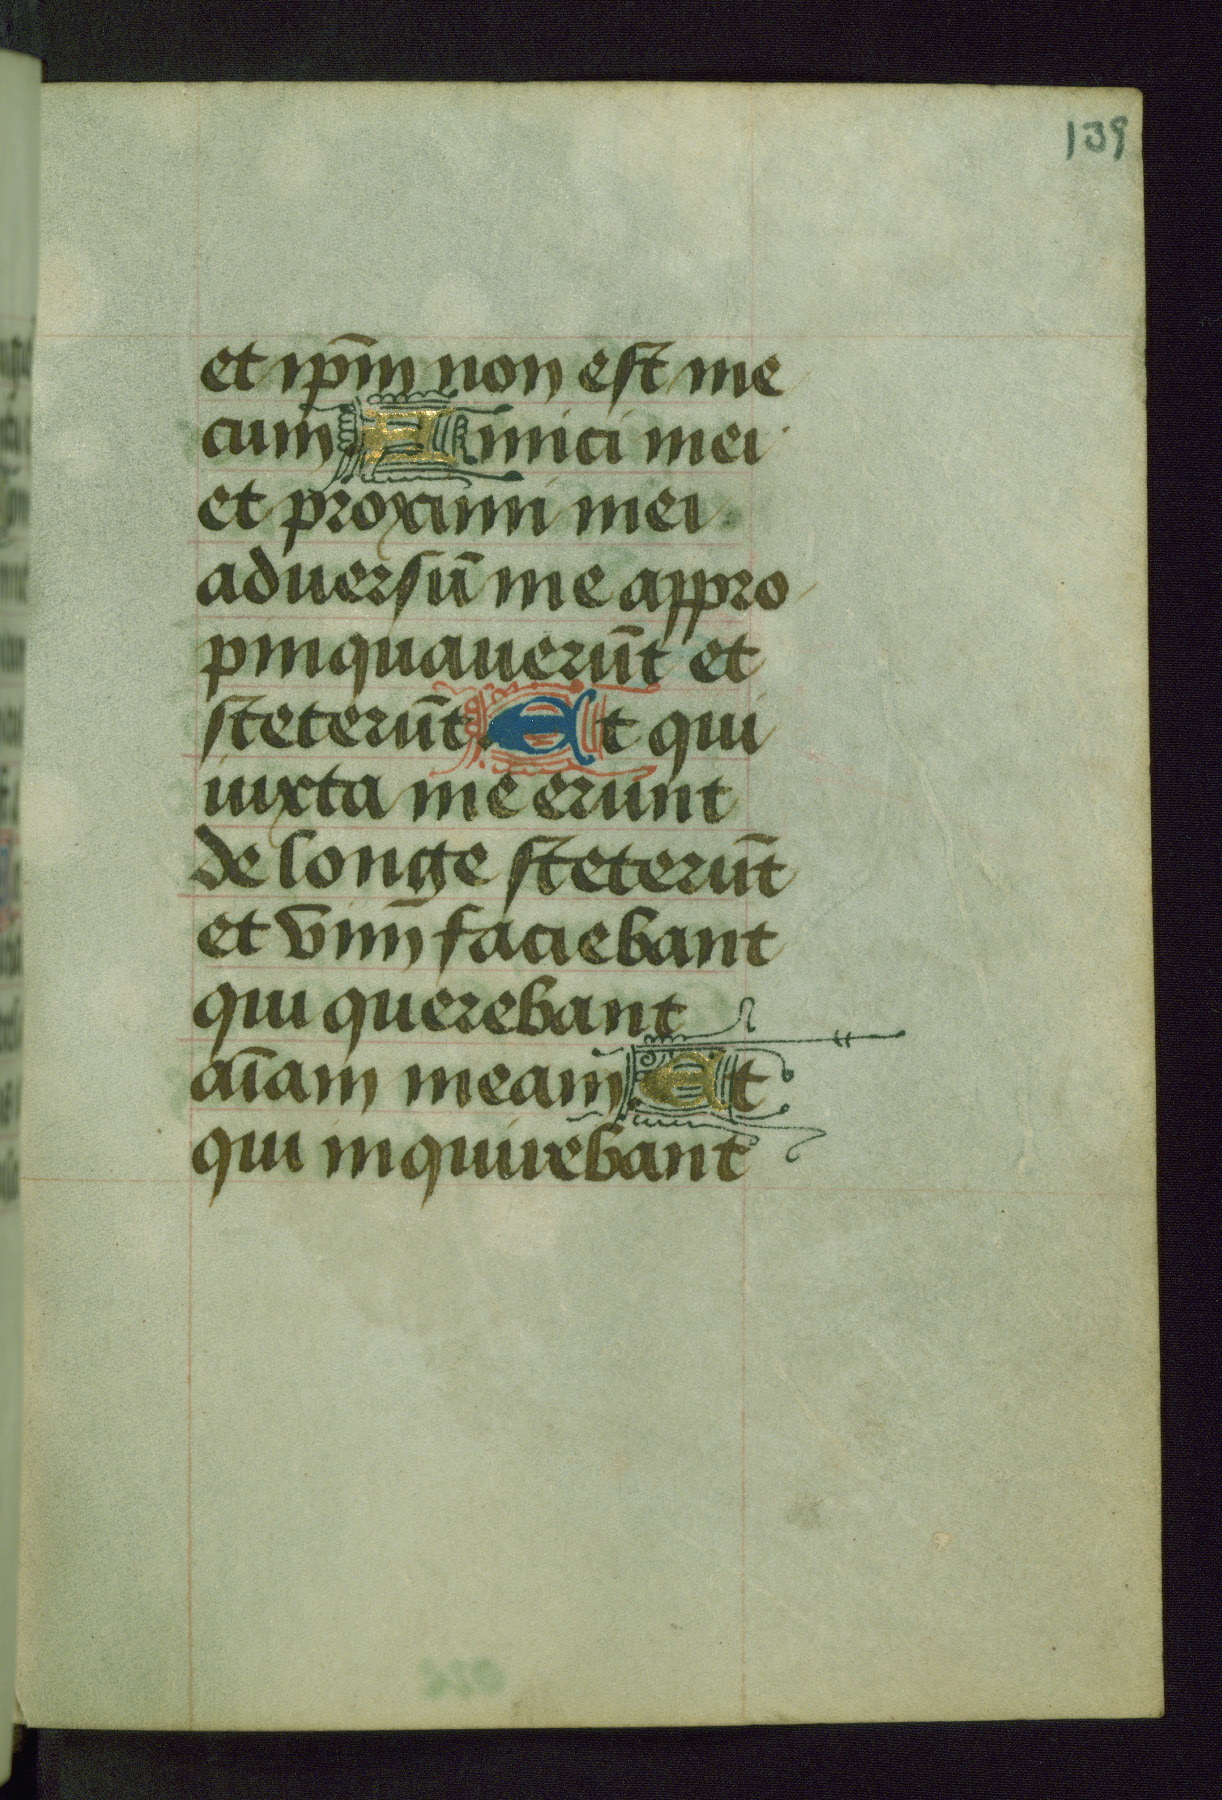 139
et ip̄m non est me
cum Amici mei
et proximi mei
adversū me appro
pinquaverūt et
steterūt Et qui
iuxta me erunt
de longe steterūt
et vim̄ faciebant
qui querebant
aīam meam Et
qui inquirebant